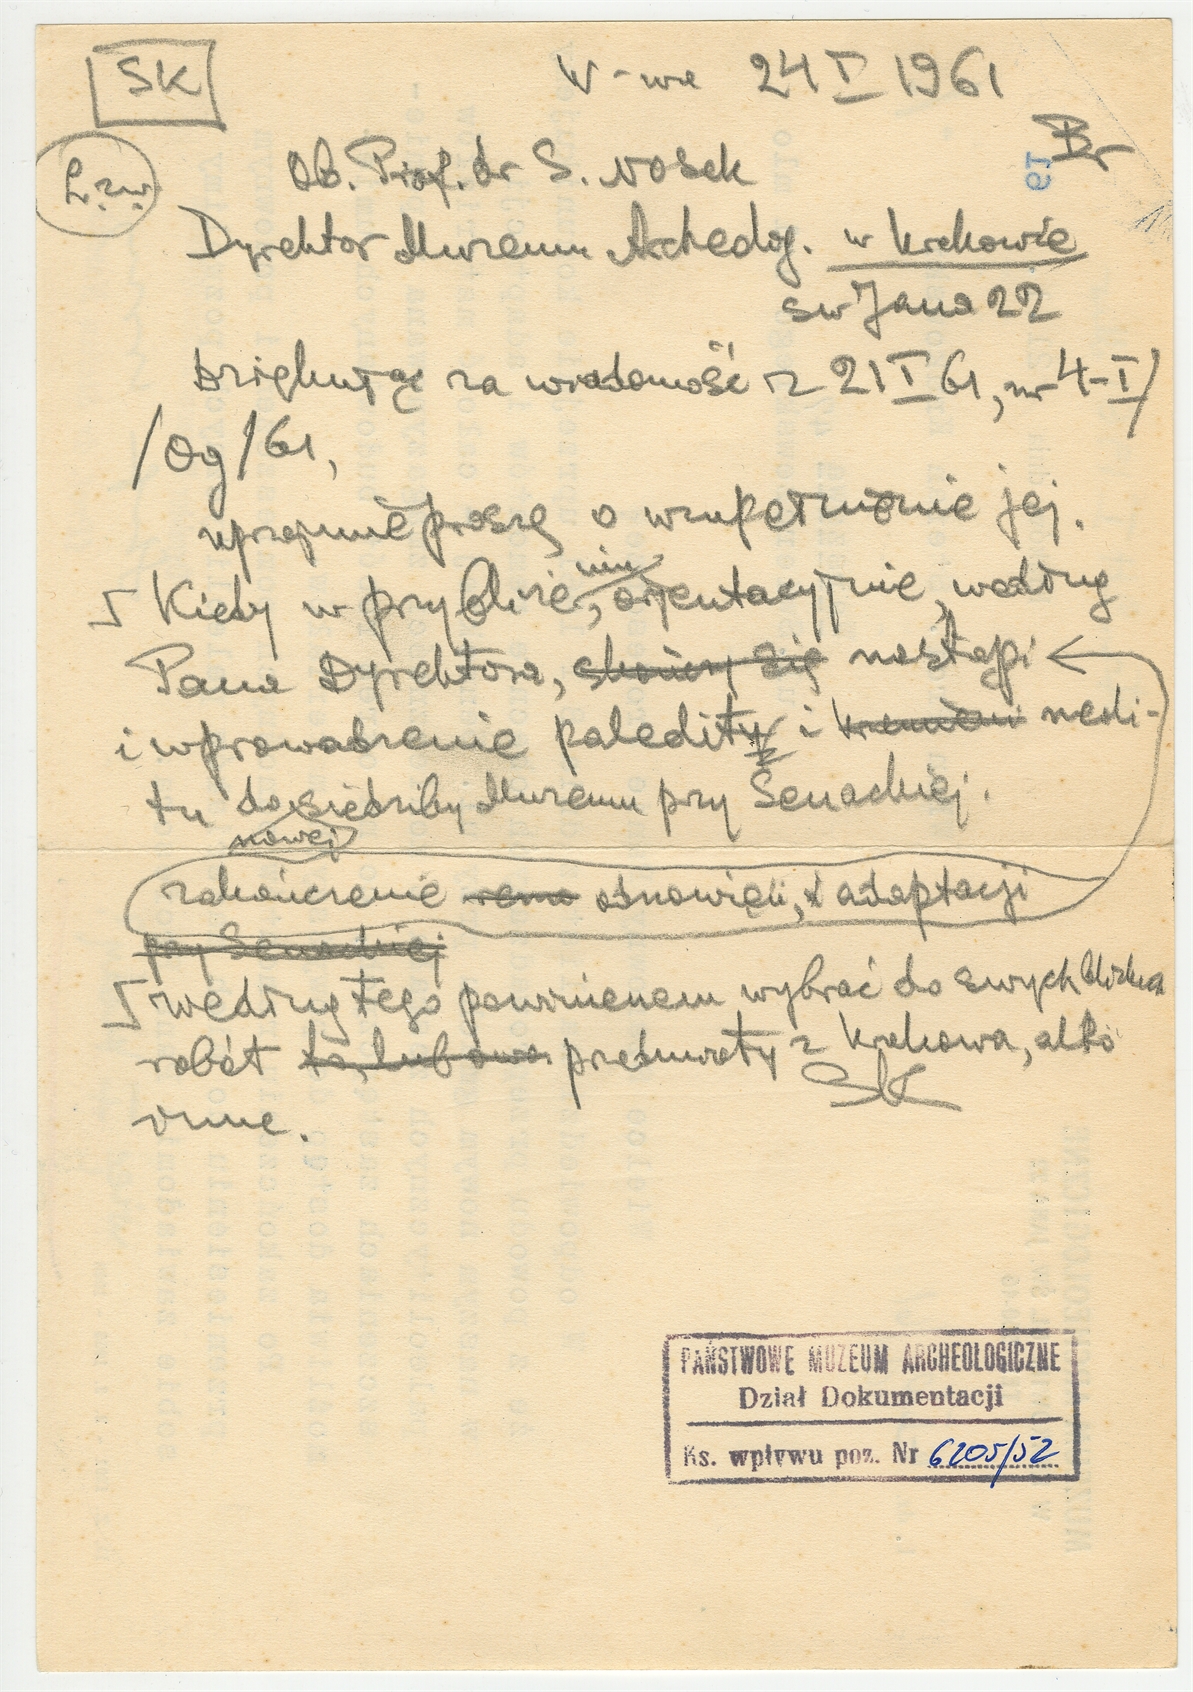 SK
W-wa 24 I 1961
Br
L.zw.
61
Ob. Prof. dr S. Nosek
Dyrektor Muzeum Archeolog. w Krakowie
św Jana 22
Dziękując za wiadomość z 21 I 61, nr 4-I/
/Og/61,
uprzejmie proszę o uzupełnienie jej.
Kiedy w przybliżeniu, orjentacyjnie, według
Pana Dyrektora, skończy się nastąpi
i wprowadzenie paleolitu i krzemieni neoli-
tu do siedziby Muzeum przy Senackiej.
nowej
zakończenie remo odnowień, i adaptacji
przy Senackiej
według tego powinienem wybrać do swych
robót przedmioty z Krakowa, albo
inne.
SK
PAŃSTWOWE MUZEUM ARCHEOLOGICZNE
Dział Dokumentacji
Ks. wpływu poz. Nr 6205/52